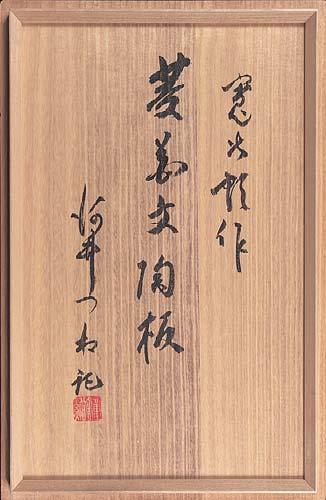 寛次郎作
菱花文陶板
河井つね記